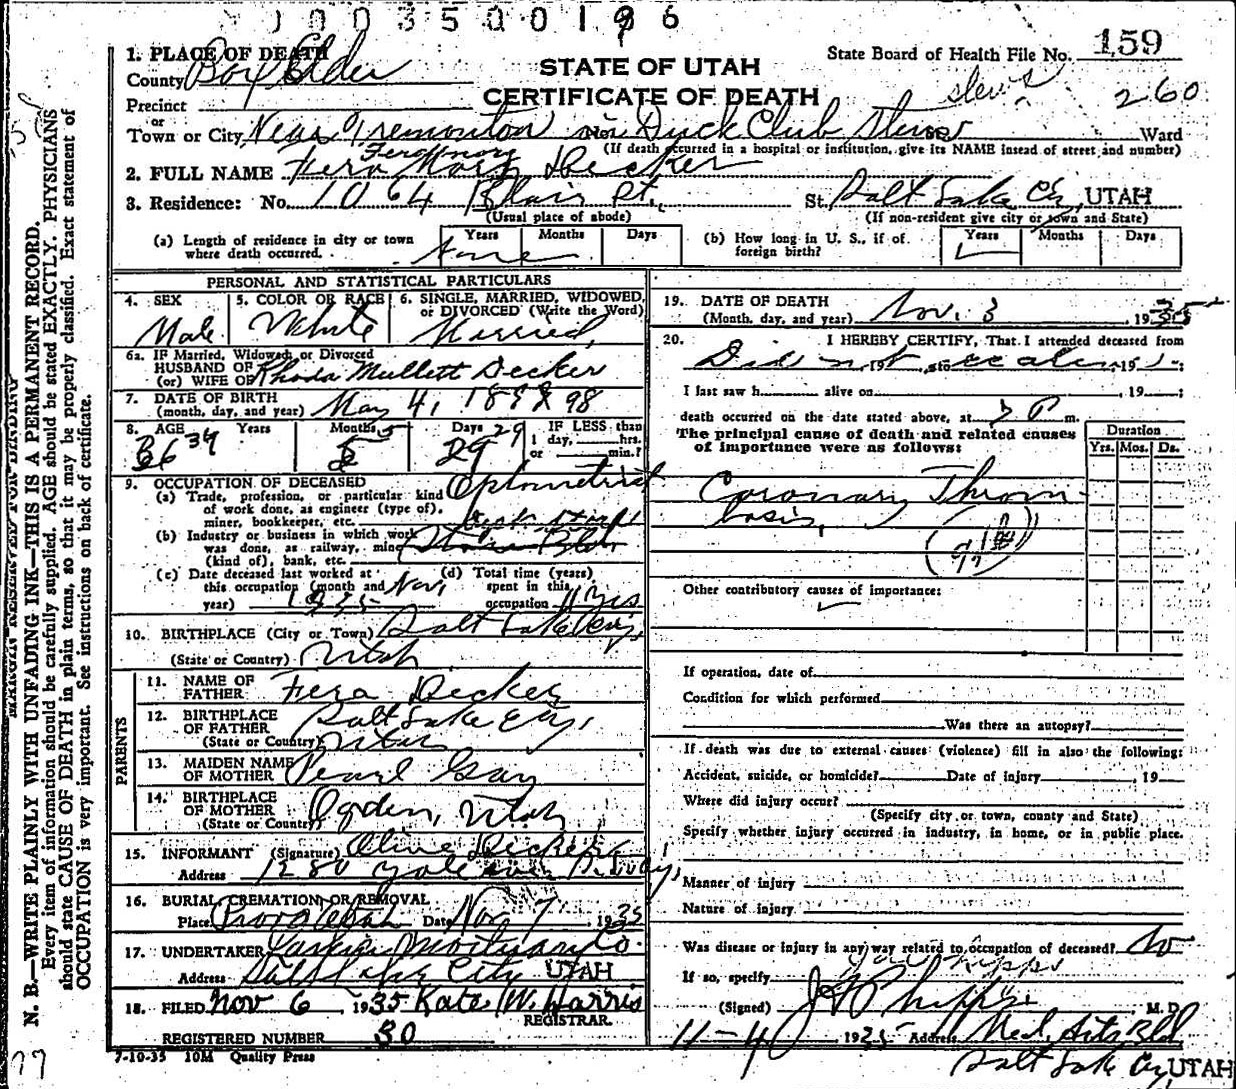 1003500196
1. PLACE OF DEATH
County Box Elder
State Board of Health File No. 159
STATE OF UTAH
CERTIFICATE OF DEATH
260
Precinct
or
Town or City Near Tremonton in Duck Club Ward
(If death occurred in a hospital or institution, give its NAME insead of street and number)
2. FULL NAME Fera Decker
3. Residence: No. 1064 Blair St., St. Salt Lake City, UTAH
(Usual place of abode) (If non-resident give city or town and State)
(a) Length of residence in city or town where death occurred. None Years Months Days
(b) How long in U. S., if of foreign birth? Years Months Days
PERSONAL AND STATISTICAL PARTICULARS
4. SEX Male
5. COLOR OR RACE White
6. SINGLE, MARRIED, WIDOWED, or DIVORCED (Write the Word) Married
6a. IF Married, Widowed, or Divorced
HUSBAND OF
(or) WIFE OF Rhoda Mullett Decker
7. DATE OF BIRTH
(month, day, and year) May 4, 1898
8. AGE Years 37 Months 5 Days 29 IF LESS than 1 day, hrs. or min.?
9. OCCUPATION OF DECEASED
(a) Trade, profession, or particular kind of work done, as engineer (type of), miner, bookkeeper, etc. Optometrist
(b) Industry or business in which work was done, as railway, mine (kind of), bank, etc.
(c) Date deceased last worked at this occupation (month and year) Nov. 1935
(d) Total time (years) spent in this occupation 11 yrs
10. BIRTHPLACE (City or Town) Salt Lake City,
(State or Country) Utah
PARENTS
11. NAME OF FATHER Fera Decker
12. BIRTHPLACE OF FATHER Salt Lake City,
(State or Country) Utah
13. MAIDEN NAME OF MOTHER Pearl Gay
14. BIRTHPLACE OF MOTHER Ogden, Utah
(State or Country)
15. INFORMANT (Signature) Olive Decker
Address 1280 Yale Ave
16. BURIAL, CREMATION OR REMOVAL
Place Provo Utah Date Nov 7 1935
17. UNDERTAKER Mortuary Co.
Address Salt Lake City UTAH
18. FILED Nov 6, 1935 Kate W. Harris
REGISTRAR.
REGISTERED NUMBER 30
7-10-35 10M Quality Press
19. DATE OF DEATH
(Month, day, and year) Nov. 3, 1935
20. I HEREBY CERTIFY, That I attended deceased from
Did not see alive 19 , to , 19 ;
I last saw h alive on , 19 ;
death occurred on the date stated above, at 7 P m.
The principal cause of death and related causes of importance were as follows:
Duration
Yrs. Mos. Ds.
Coronary Throm-
bosis,
Other contributory causes of importance:
If operation, date of
Condition for which performed
Was there an autopsy?
If death was due to external causes (violence) fill in also the following:
Accident, suicide, or homicide? Date of injury , 19
Where did injury occur?
(Specify city or town, county and State)
Specify whether injury occurred in industry, in home, or in public place.
Manner of injury
Nature of injury
Was disease or injury in any way related to occupation of deceased? No
If so, specify
(Signed) M. D.
11-4 1935 Address Med. Arts Bld
Salt Lake City, UTAH
N. B.—WRITE PLAINLY WITH UNFADING INK—THIS IS A PERMANENT RECORD.
Every item of information should be carefully supplied. AGE should be stated EXACTLY. PHYSICIANS
should state CAUSE OF DEATH in plain terms, so that it may be properly classified. Exact statement of
OCCUPATION is very important. See instructions on back of certificate.